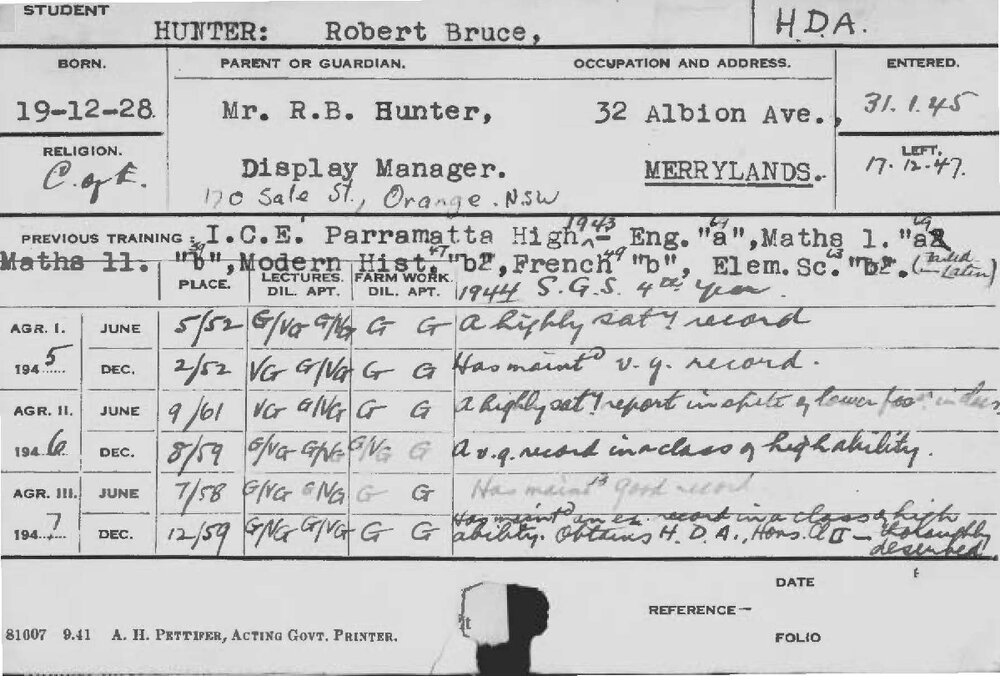 STUDENT
HUNTER: Robert Bruce,
H.D.A.
BORN. PARENT OR GUARDIAN. OCCUPATION AND ADDRESS. ENTERED.
19-12-28. Mr. R.B. Hunter, 32 Albion Ave., 31.1.45
RELIGION. LEFT.
C. of E. Display Manager. MERRYLANDS. 17.12.47.
170 Sale St., Orange. NSW
PREVIOUS TRAINING: I.C.E. Parramatta High 1943 Eng. "a", Maths 1. "a
Maths 11. "b", Modern Hist. "b", French "b", Elem. Sc. "b". (failed in Latin)
PLACE. LECTURES. FARM WORK. 1944 S.G.S. 4th Year.
DIL. APT. DIL. APT.
AGR. I. JUNE 5/52 G/VG G/VG G G A highly saty record
1945 DEC. 2/52 VG G/VG G G Has maintd v.g. record.
AGR. II. JUNE 9/61 VG G/VG G G A highly saty report in spite of lower
1946. DEC. 8/59 G/VG G/VG G/VG G A v.g. record in a class of high ability.
AGR. III. JUNE 7/58 G/VG G/VG G G Has maintd good record
1947 DEC. 12/59 G/VG G/VG G G Has maintd an ex. record in a class of high
ability. Obtains H.D.A., Hons. Cl II — thoroughly
deserved.
DATE
REFERENCE—
FOLIO
81007 9.41 A. H. PETTIFER, ACTING GOVT. PRINTER.